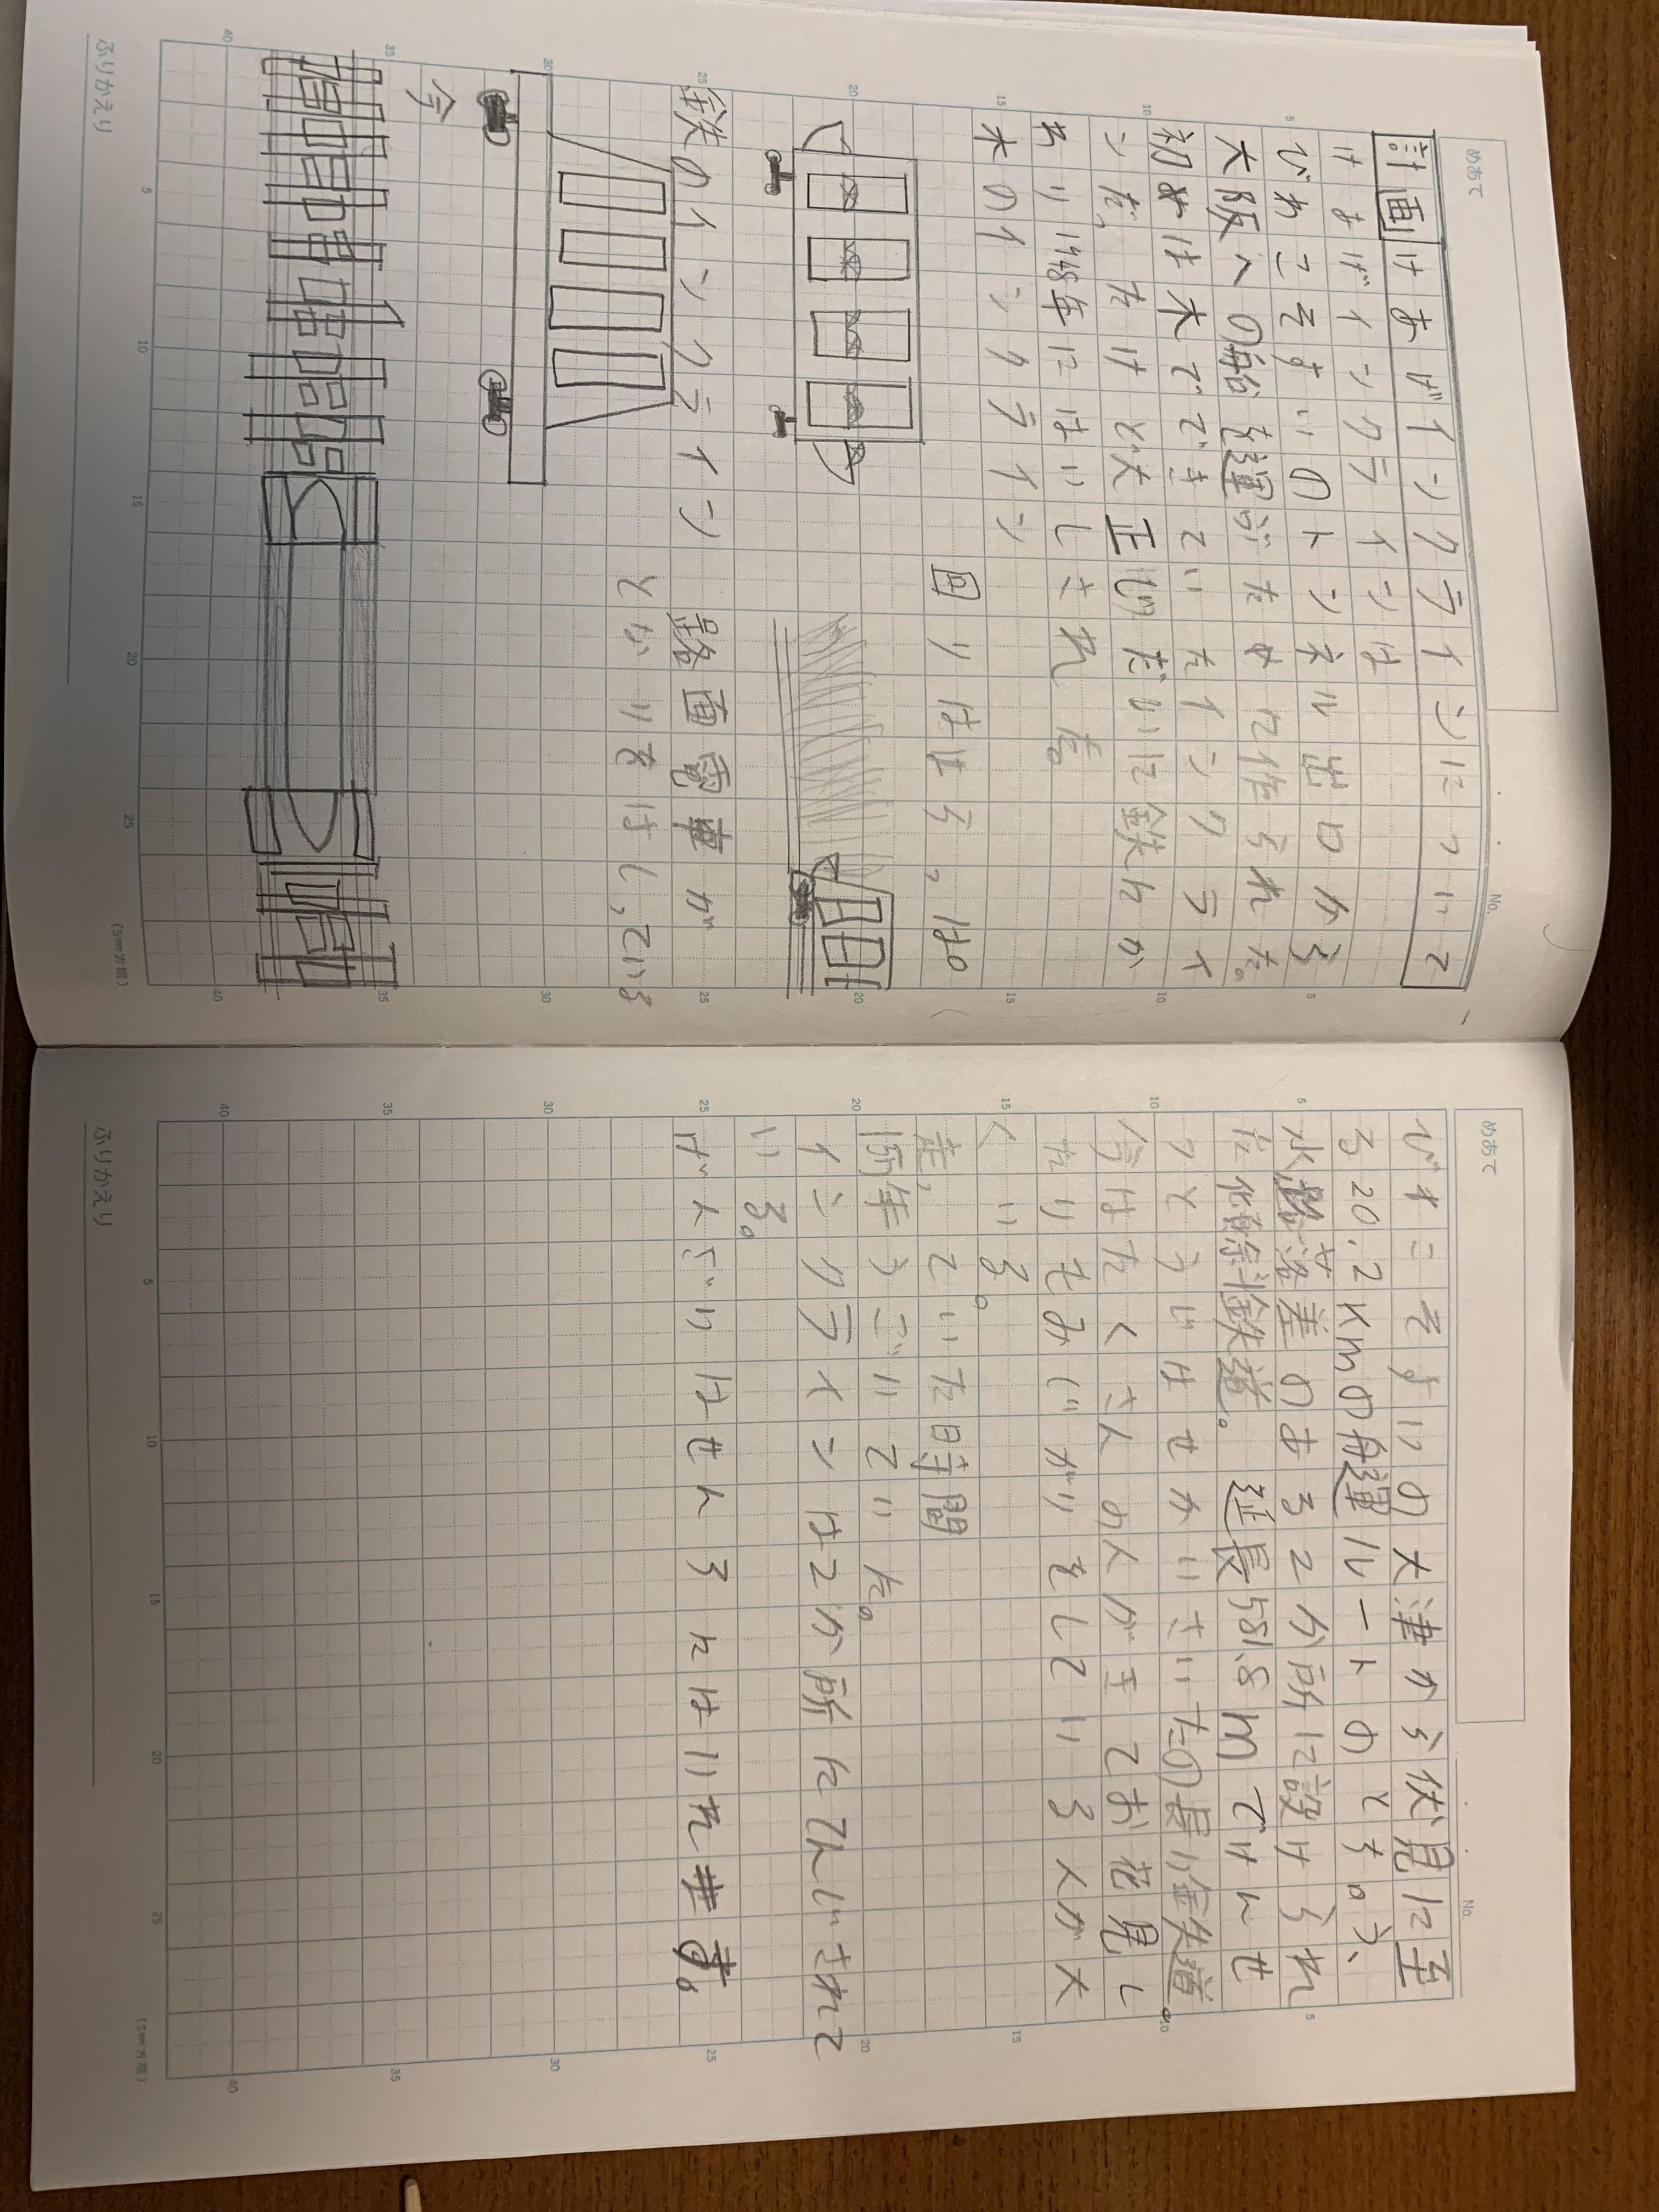 めあて
No.
計画けあげインクラインについて
けあげインクラインは
びわこそすいのトンネル出口から
大阪への船を運ぶために作られた。
初めは木でできていたインクライ
ンだったけど大正時だいに鉄にか
わり1948年にはいしされた。
木のインクライン
回りははら、は。
鉄のインクライン
路面電車が
とかりをはしっている
今
ふりかえり
(5mm方眼)
めあて
No.
びわこそすいの大津から伏見に至
る20.2kmの舟運ルートのとちゅう、
水路落差のある2か所に設けられ
た傾斜鉄道。延長581.8mでけんせ
つとうじはせかいさいたの長い鉄道。
今はたくさんの人がきてお花見し
たりもみじがりをしている人が大
くいる。
走っていた時間
15分年うごいていた。
インクラインは2か所にてんじされて
いる。
げんざいはせんろにはいれます。
ふりかえり
(5mm方眼)